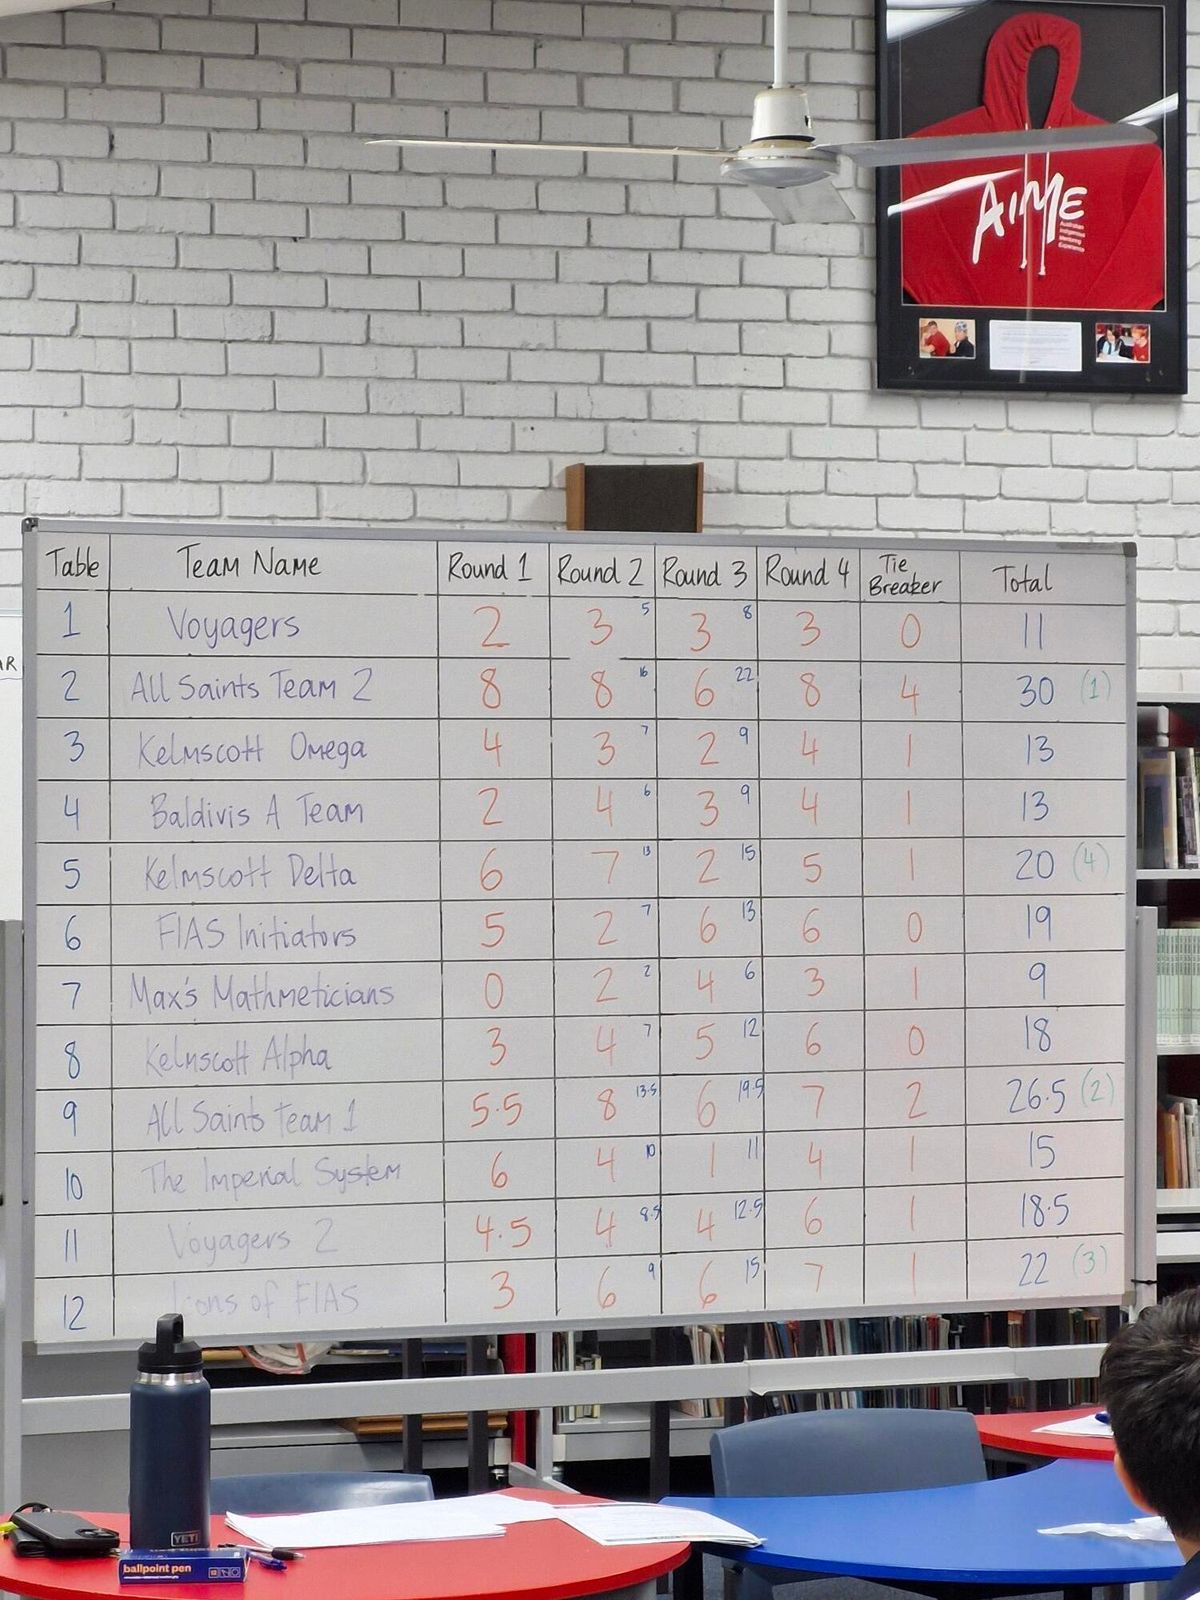 AIME
Australian
Indigenous
Mentoring
Experience
Table Team Name Round 1 Round 2 Round 3 Round 4 Tie Breaker Total
1 Voyagers 2 3 5 3 8 3 0 11
2 All Saints Team 2 8 8 16 6 22 8 4 30 (1)
3 Kelmscott Omega 4 3 7 2 9 4 1 13
4 Baldivis A Team 2 4 6 3 9 4 1 13
5 Kelmscott Delta 6 7 13 2 15 5 1 20 (4)
6 FIAS Initiators 5 2 7 6 13 6 0 19
7 Max's Mathmeticians 0 2 2 4 6 3 1 9
8 Kelmscott Alpha 3 4 7 5 12 6 0 18
9 All Saints Team 1 5.5 8 13.5 6 19.5 7 2 26.5 (2)
10 The Imperial System 6 4 10 1 11 4 1 15
11 Voyagers 2 4.5 4 8.5 4 12.5 6 1 18.5
12 Lions of FIAS 3 6 9 6 15 7 1 22 (3)
AR
YETI
ballpoint pen